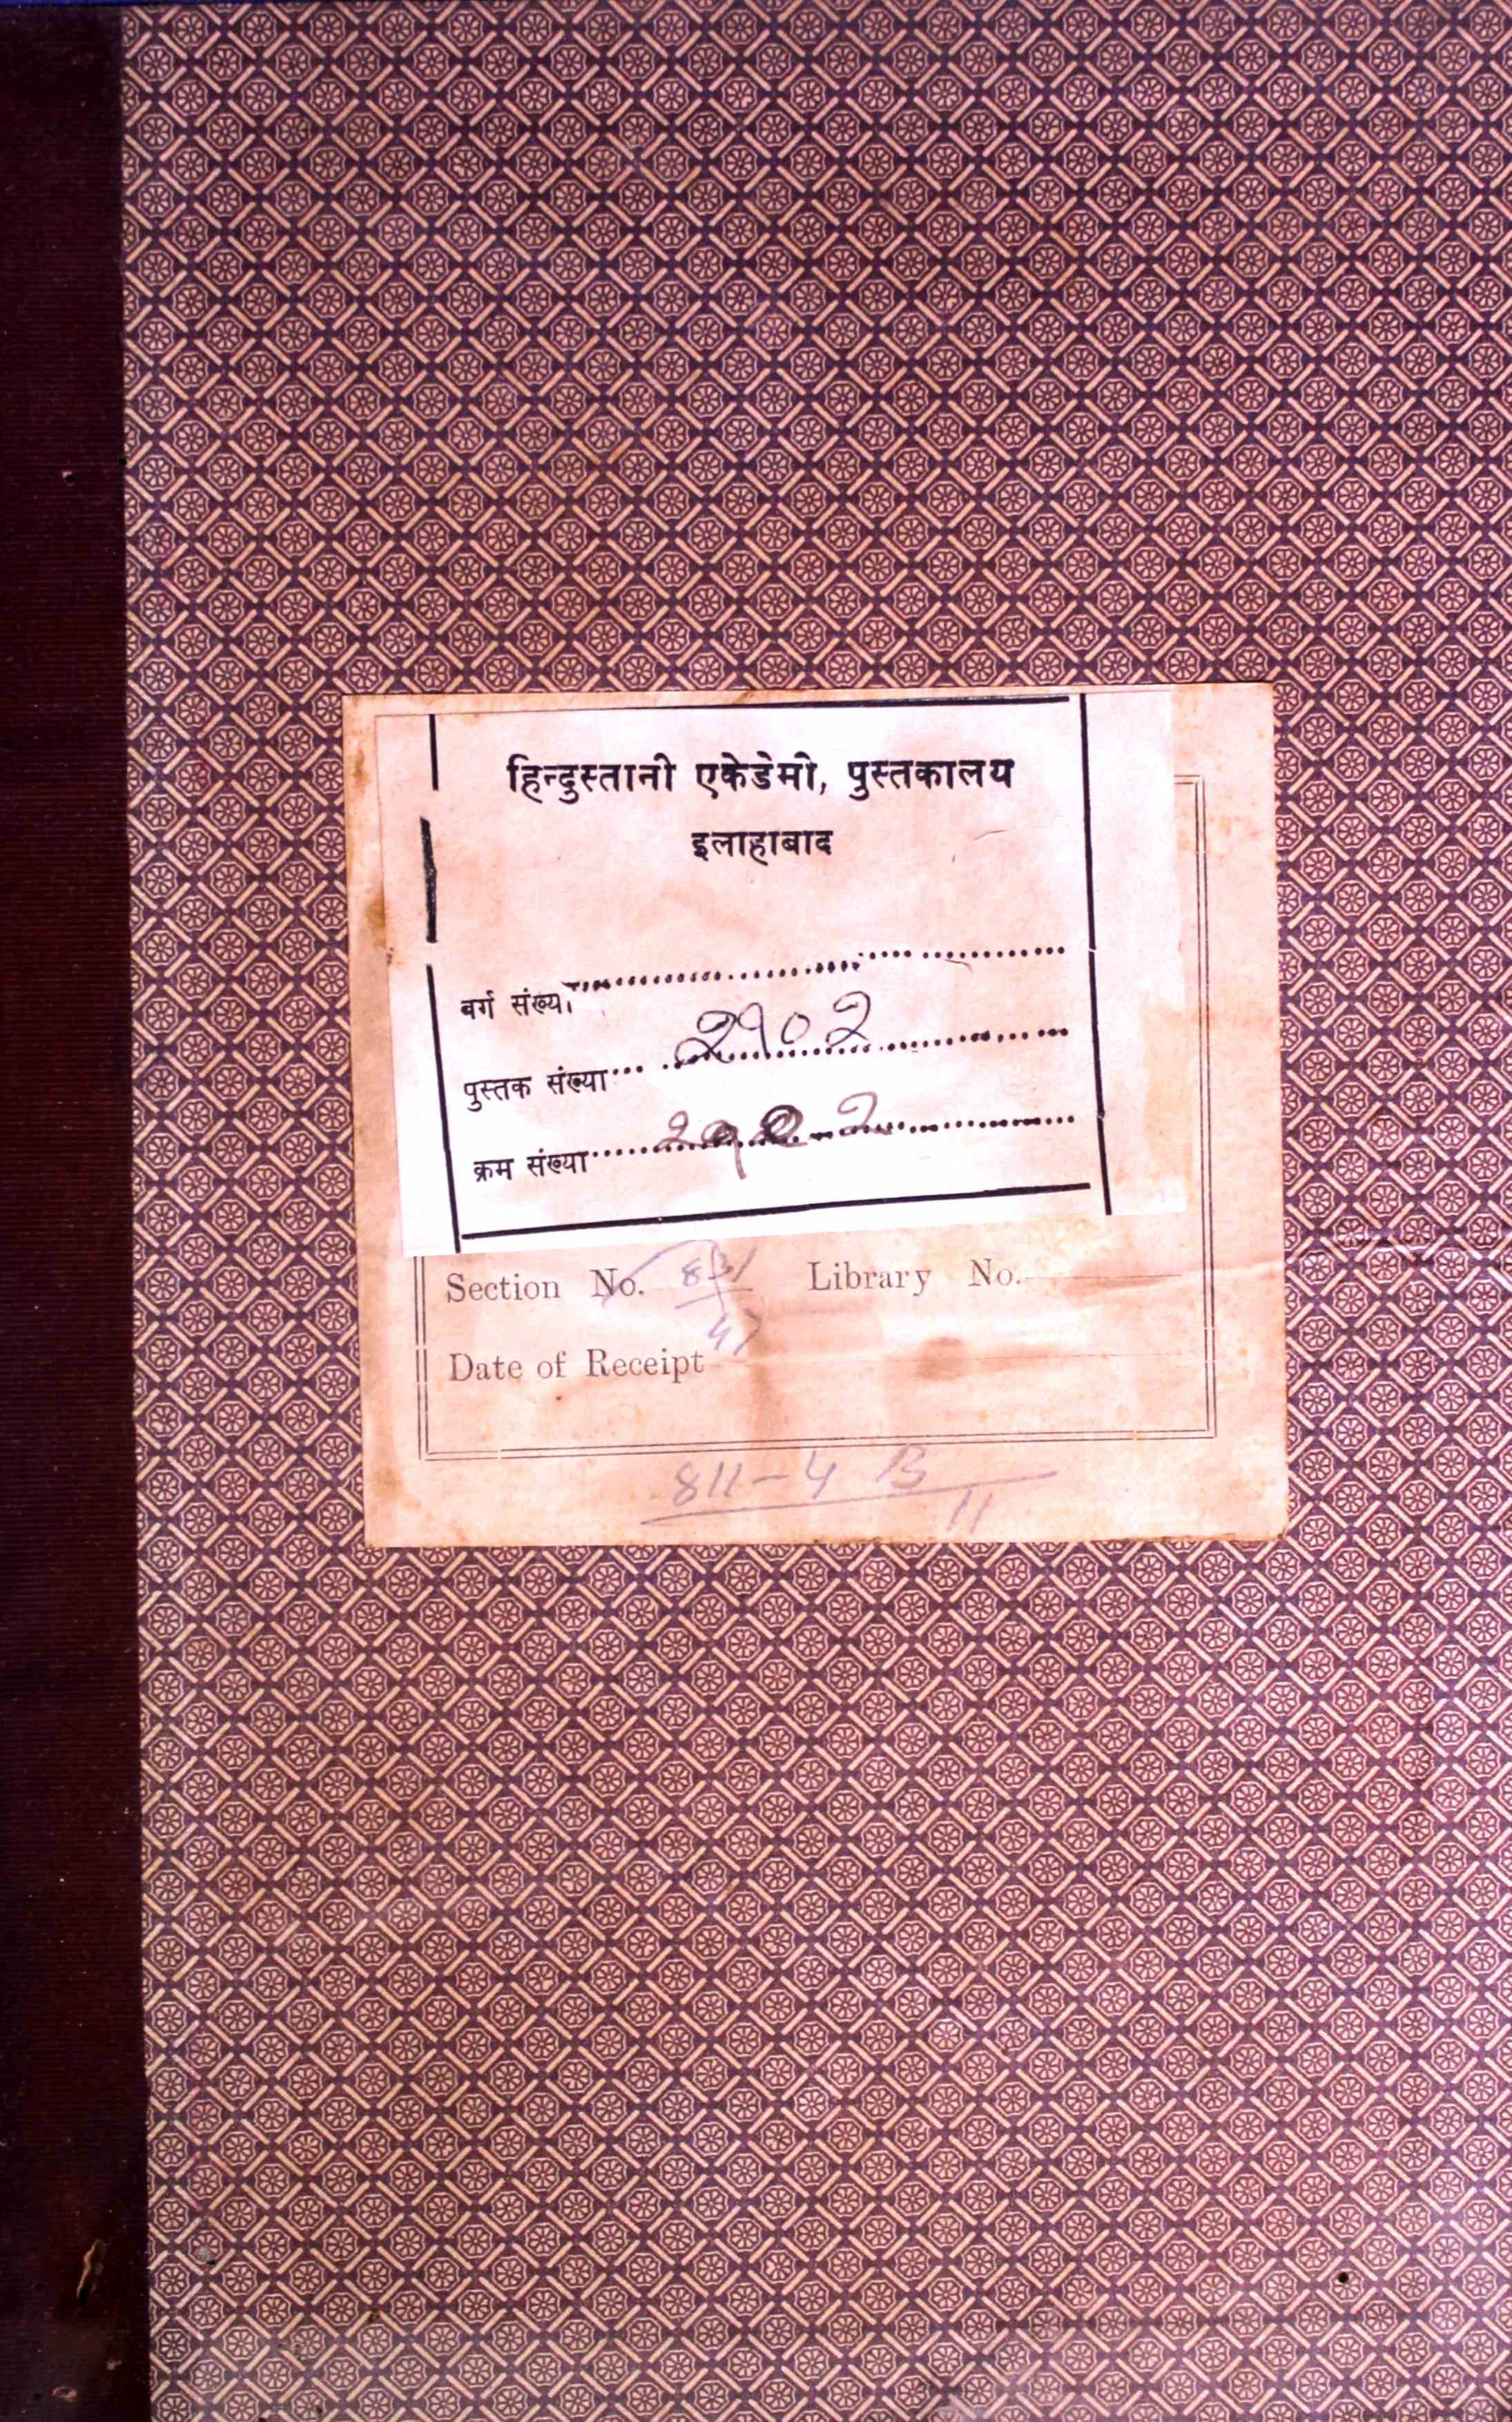 हिन्दुस्तानी एकेडेमी, पुस्तकालय
इलाहाबाद
वर्ग संख्या
पुस्तक संख्या २१०२
क्रम संख्या
Section No. Library No.
Date of Receipt
811-4 B
11